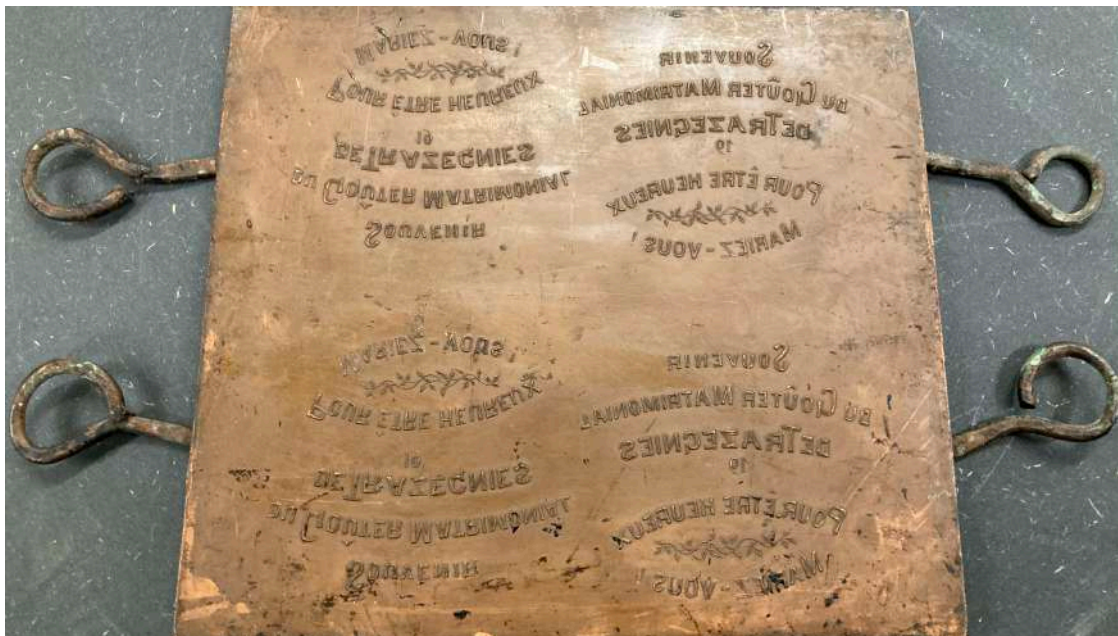 SOUVENIR
DU GOÛTER MATRIMONIAL
DE TRAZEGNIES
19
POUR ÊTRE HEUREUX
MARIEZ-VOUS !
SOUVENIR
DU GOÛTER MATRIMONIAL
DE TRAZEGNIES
19
POUR ÊTRE HEUREUX
MARIEZ-VOUS !
SOUVENIR
DU GOÛTER MATRIMONIAL
DE TRAZEGNIES
19
POUR ÊTRE HEUREUX
MARIEZ-VOUS !
SOUVENIR
DU GOÛTER MATRIMONIAL
DE TRAZEGNIES
19
POUR ÊTRE HEUREUX
MARIEZ-VOUS !